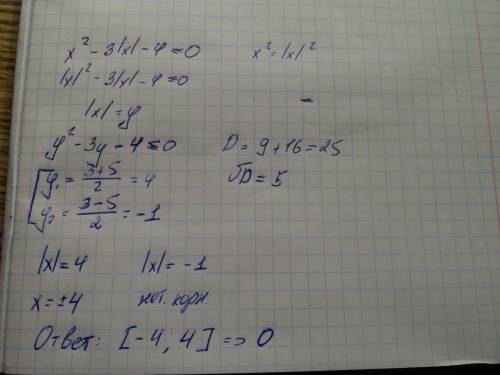 x² - 3|x| - 4 = 0 x² = |x|²
|x|² - 3|x| - 4 = 0
|x| = y
y² - 3y - 4 = 0 D = 9 + 16 = 25
y₁ = (3+5)/2 = 4 √D = 5
y₂ = (3-5)/2 = -1
|x| = 4 |x| = -1
x = ±4 нет. корн.
Ответ: [-4; 4] => 0